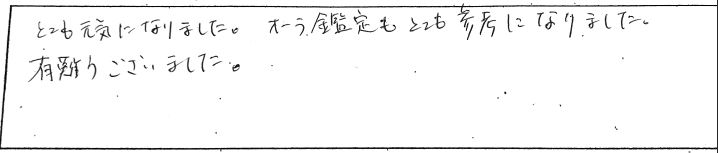 とても元気になりました。オーラ鑑定もとても参考になりました。
有難うございました。